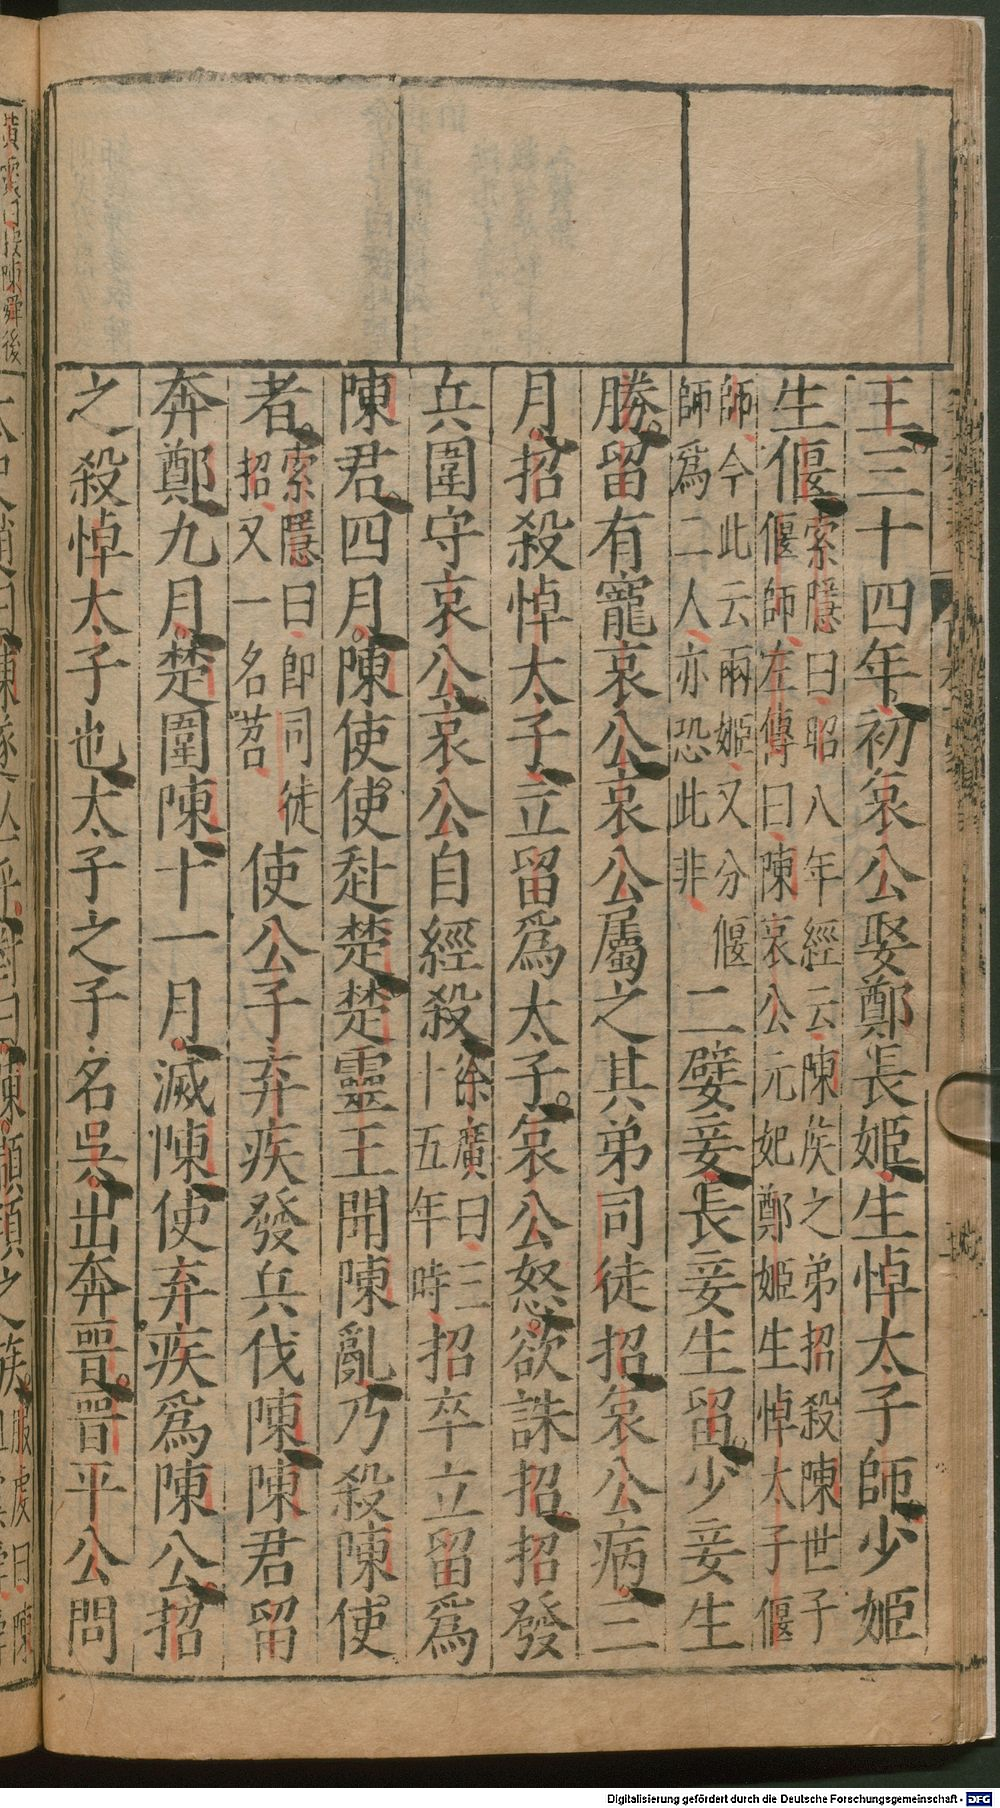 王三十四年初哀公娶鄭長姬生悼太子師少姬
生偃索隱曰昭八年經云陳侯之弟招殺陳世子
偃師左傳曰陳哀公元妃鄭姬生悼太子偃
師今此云兩姬又分偃
師爲二人亦恐此非二嬖妾長妾生留少妾生
勝留有寵哀公哀公屬之其弟司徒招哀公病三
月招殺悼太子立留爲太子哀公怒欲誅招招發
兵圍守哀公哀公自經殺徐廣曰三
十五年時招卒立留爲
陳君四月陳使使赴楚楚靈王聞陳亂乃殺陳使
者索隱曰即司徒
招又一名苕使公子弃疾發兵伐陳陳君留
奔鄭九月楚圍陳十一月滅陳使弃疾爲陳公招
之殺悼太子也太子之子名吳出奔晋晋平公問
Digitalisierung gefördert durch die Deutsche Forschungsgemeinschaft - DFG